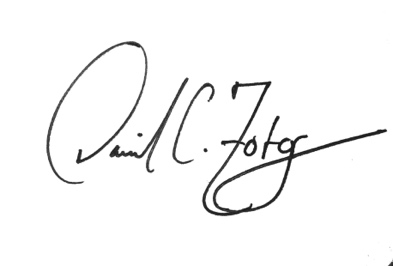 David C. Fotos